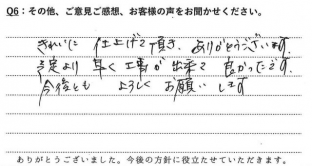 Q6：その他、ご意見ご感想、お客様の声をお聞かせください。
きれいに 仕上げて頂き、ありがとうございます。
予定より 早く 工事が 出来て 良かったです。
今後とも よろしく お願い します
ありがとうございました。今後の方針に役立たせていただきます。